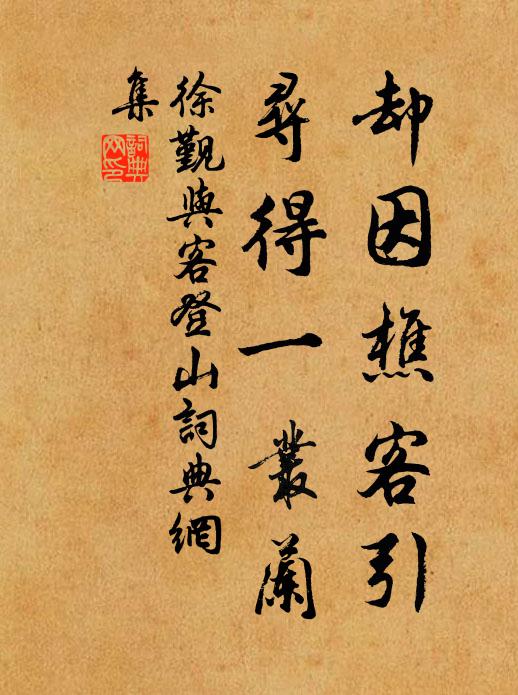 却因樵客引
尋得一叢蘭
徐觀與客登山詞典網
集
詞典網印